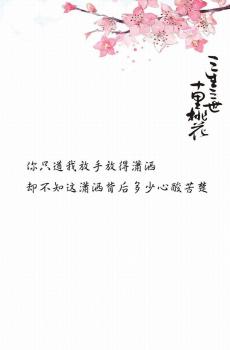 三生三世
十里桃花
你只道我放手放得潇洒
却不知这潇洒背后多少心酸苦楚